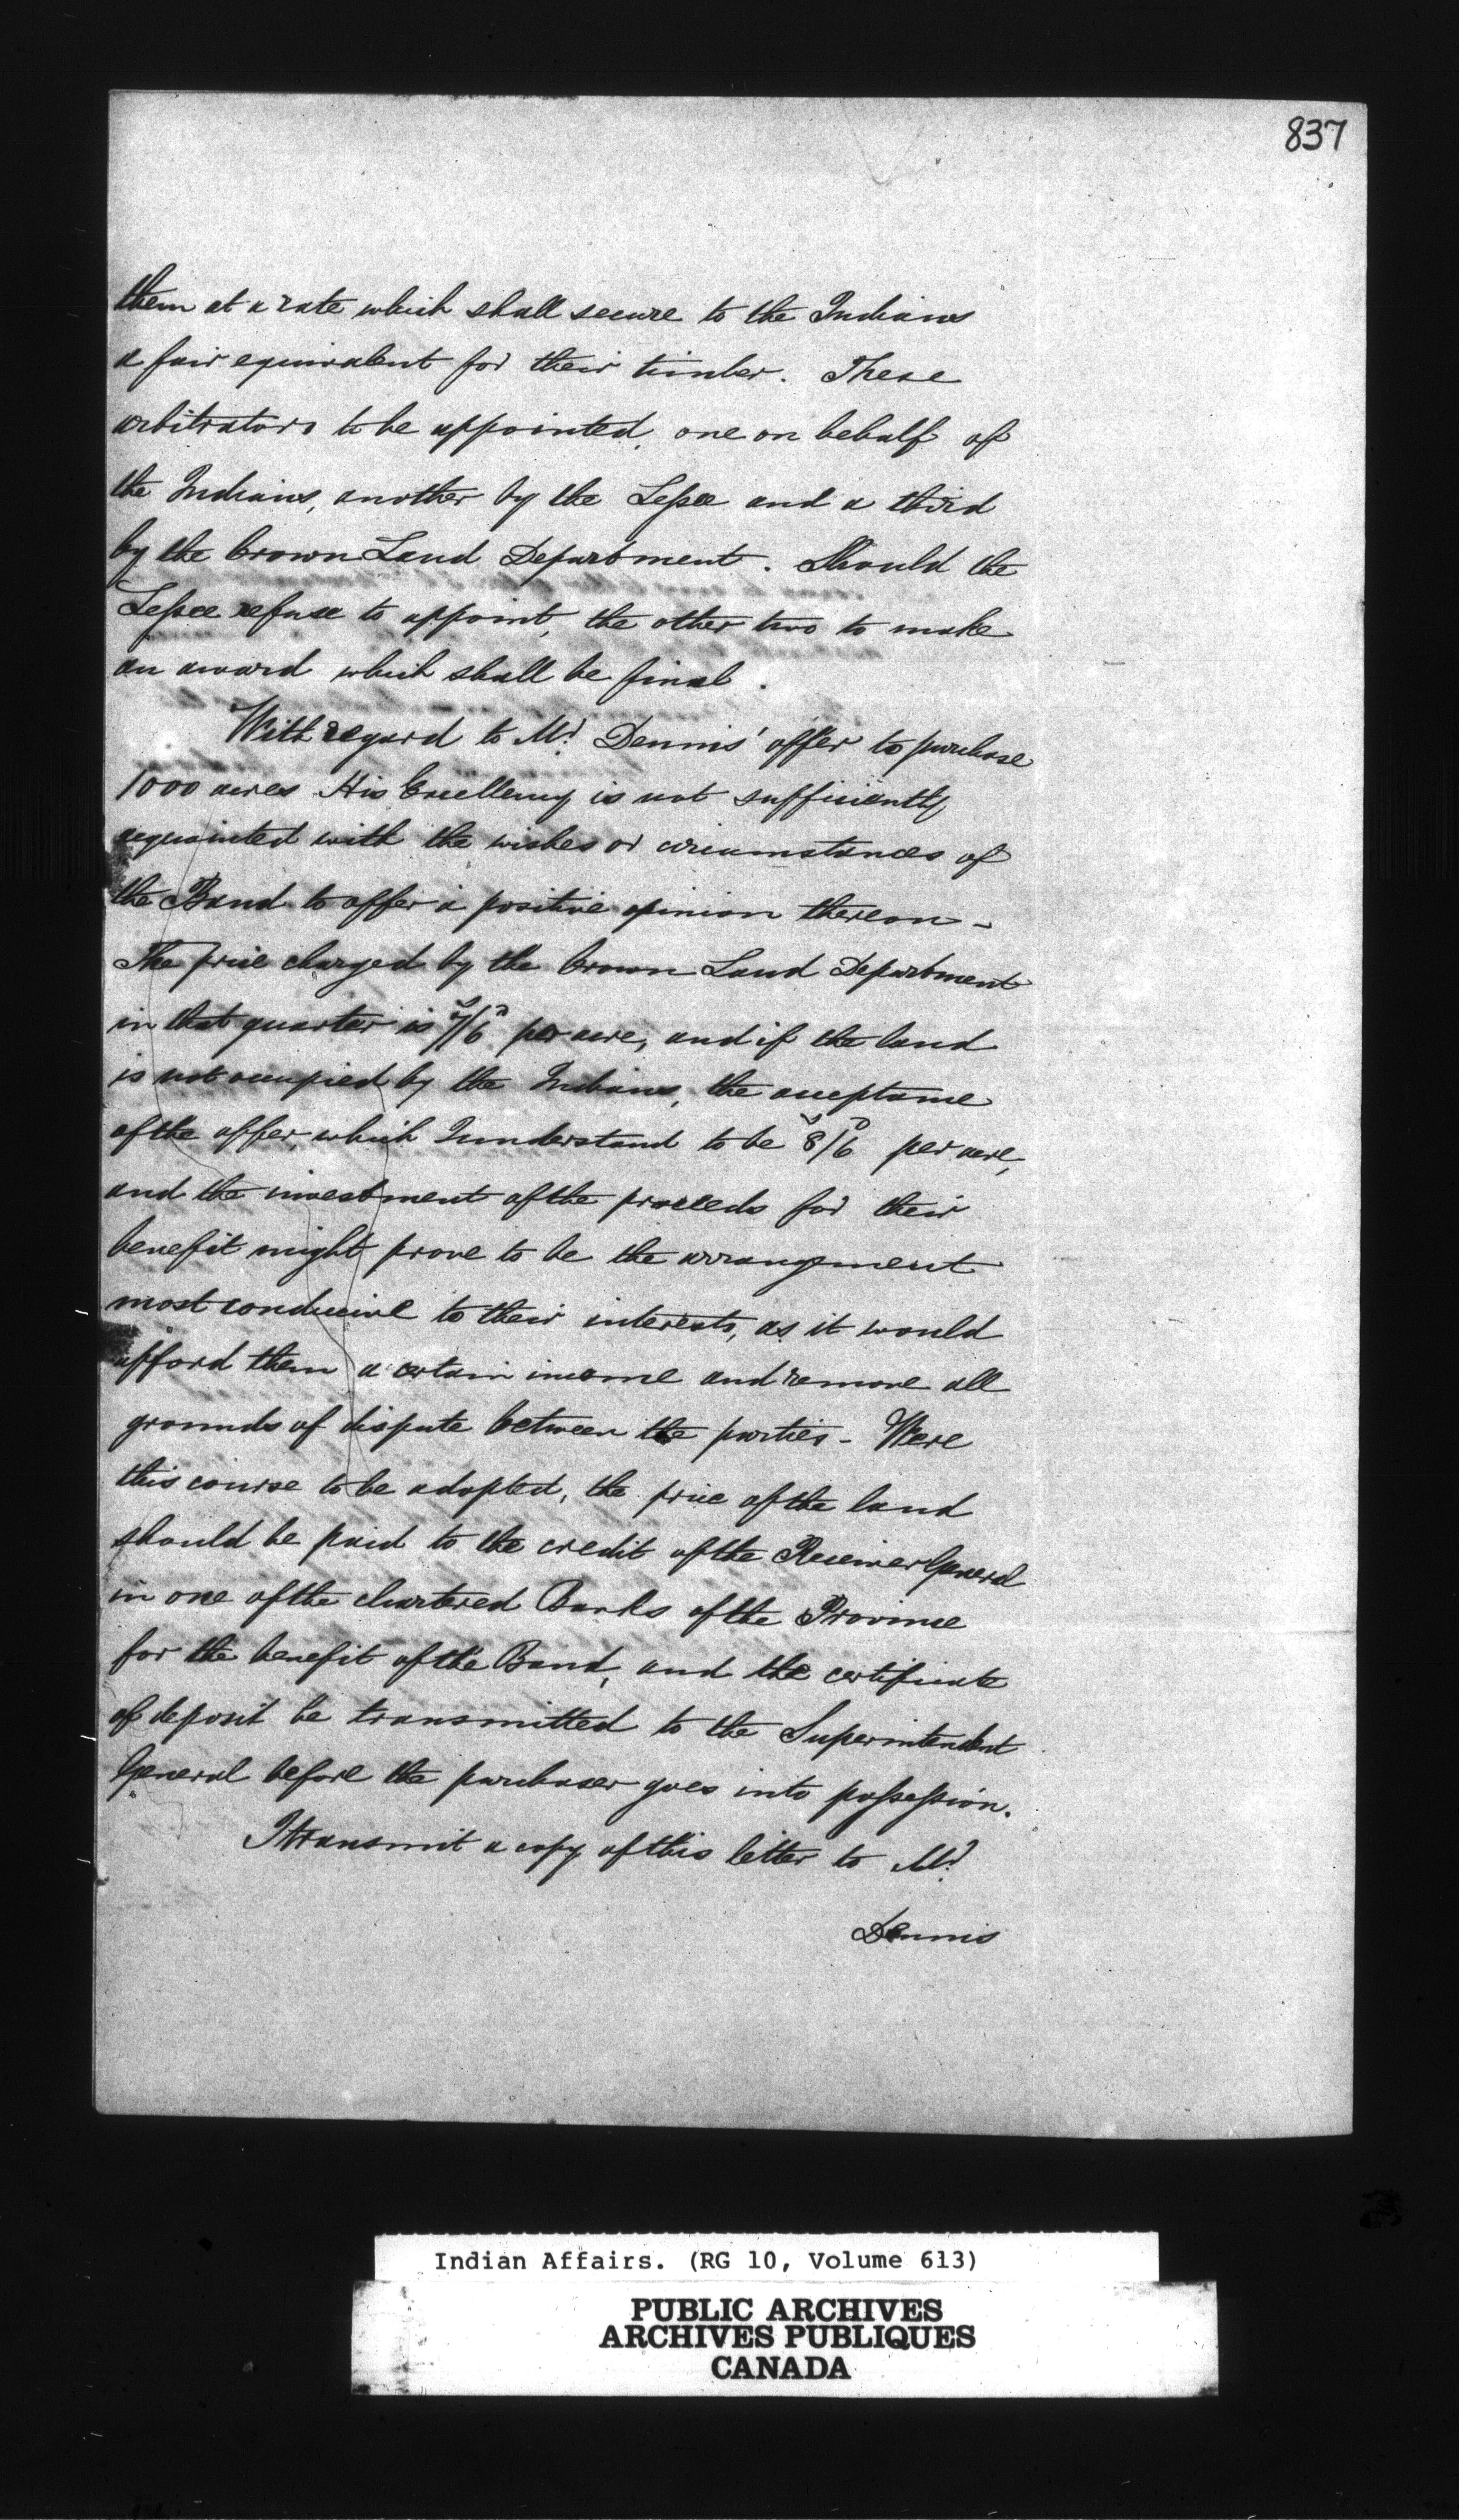 837
them at a rate which shall secure to the Indians
a fair equivalent for their timber. These
arbitrators to be appointed, one on behalf of
the Indians, another by the Lessee and a third
by the Crown Land Department. Should the
Lessee refuse to appoint, the other two to make
an award which shall be final.
With regard to Mr. Dennis' offer to purchase
1000 acres His Excellency is not sufficiently
acquainted with the wishes or circumstances of
the Band to offer a positive opinion thereon -
The price charged by the Crown Land Department
in that quarter is 7/6 per acre, and if the land
is not occupied by the Indians, the acceptance
of the offer, which I understand to be 8/6 per acre,
and the investment of the proceeds for their
benefit might prove to be the arrangement
most conducive to their interests, as it would
afford them a certain income and remove all
grounds of dispute between the parties - Were
this course to be adopted, the price of the land
should be paid to the credit of the Receiver General
in one of the chartered Banks of the Province
for the benefit of the Band, and the certificate
of deposit be transmitted to the Superintendent
General before the purchaser goes into possession.
I transmit a copy of this letter to Mr.
Dennis
Indian Affairs. (RG 10, Volume 613)
PUBLIC ARCHIVES
ARCHIVES PUBLIQUES
CANADA